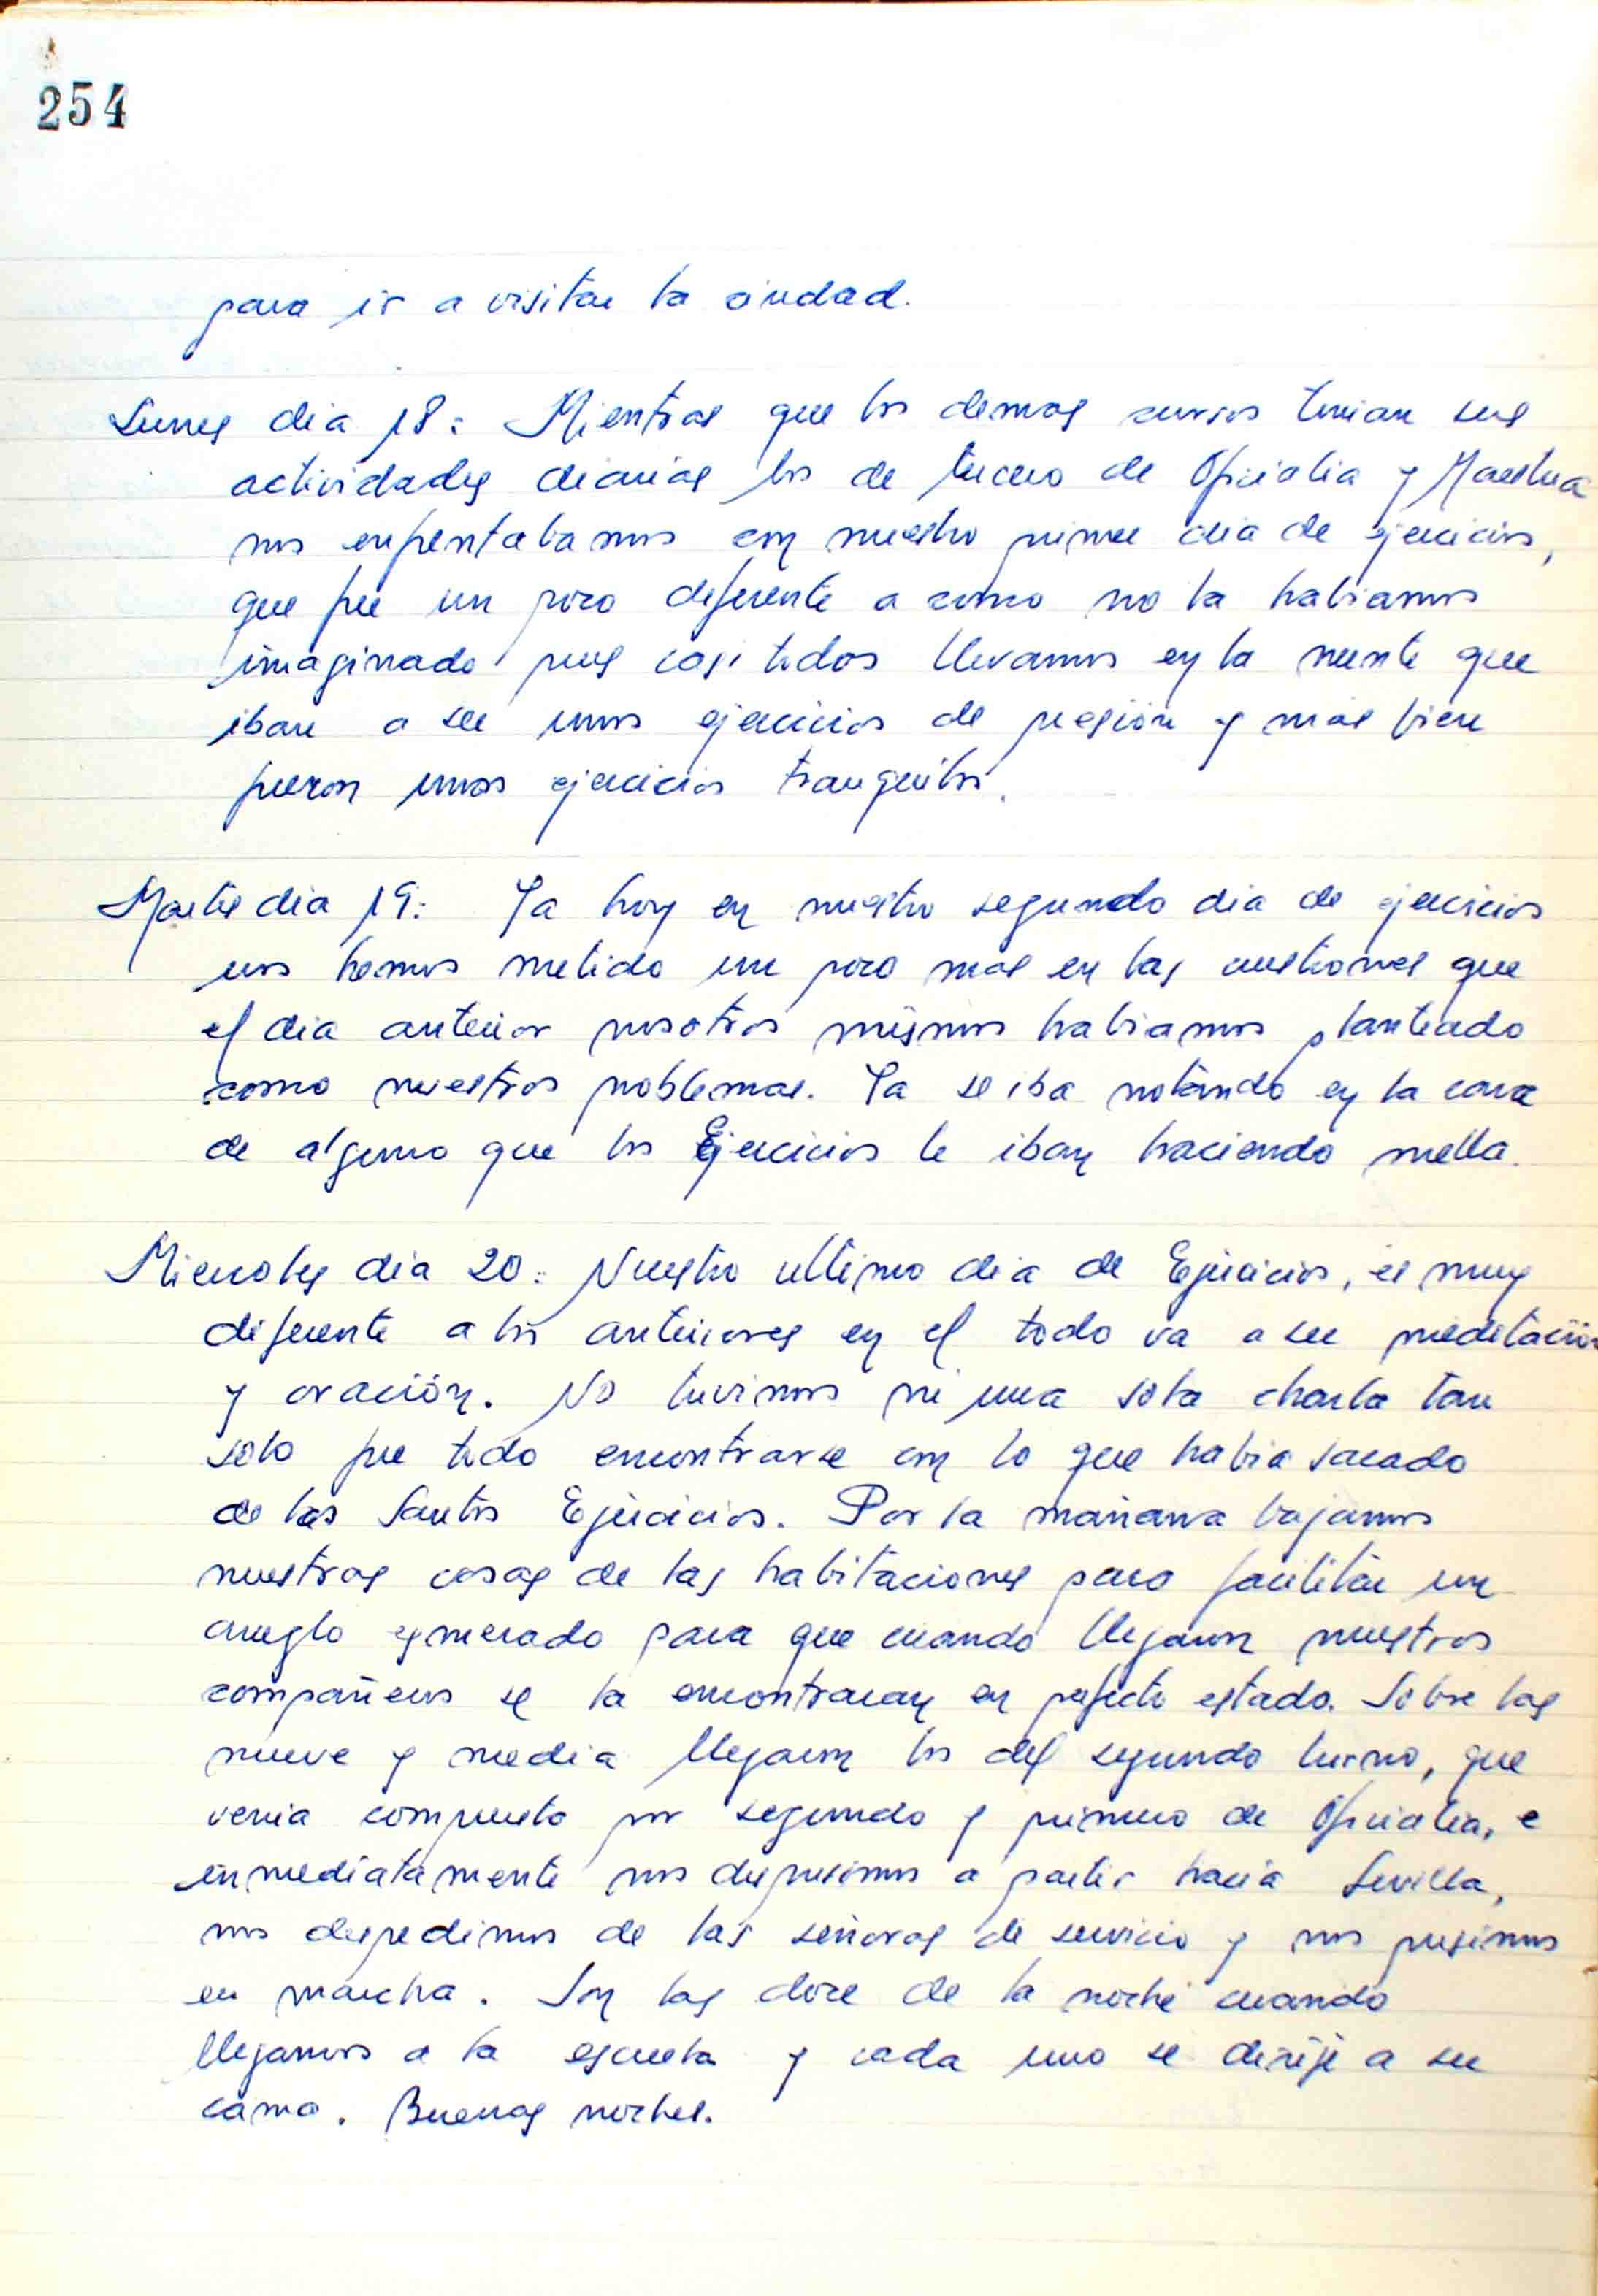 254
para ir a visitar la ciudad.
Lunes dia 18: Mientras que los demas cursos tenian sus
actividades diarias los de tercero de Oficialia y Maestria
nos enfrentabamos con nuestro primer dia de ejercicios,
que fue un poco diferente a como no la habiamos
imaginado pues casi todos llevamos en la mente que
iban a ser unos ejercicios de presión y mas bien
fueron unos ejercicios tranquilos.
Martes dia 19: Ya hoy en nuestro segundo dia de ejercicios
nos hemos metido un poco mas en las cuestiones que
el dia anterior nosotros mismos habiamos planteado
como nuestros problemas. Ya se iba notando en la cara
de alguno que los Ejercicios le iban haciendo mella.
Miercoles dia 20: Nuestro ultimo dia de Ejercicios, es muy
diferente a los anteriores en el todo va a ser meditación
y oración. No tuvimos ni una sola charla tan
solo fue todo encontrarse con lo que habia sacado
de los Santos Ejercicios. Por la mañana bajamos
nuestras cosas de las habitaciones para facilitar un
arreglo esmerado para que cuando llegaron nuestros
compañeros se la encontraran en perfecto estado. Sobre las
nueve y media llegaron los del segundo turno, que
venia compuesto por segundo y primero de Oficialia, e
inmediatamente nos dispusimos a partir hacia Sevilla,
nos despedimos de las señoras de servicio y nos pusimos
en marcha. Son las doce de la noche cuando
llegamos a la escuela y cada uno se dirije a su
cama. Buenas noches.